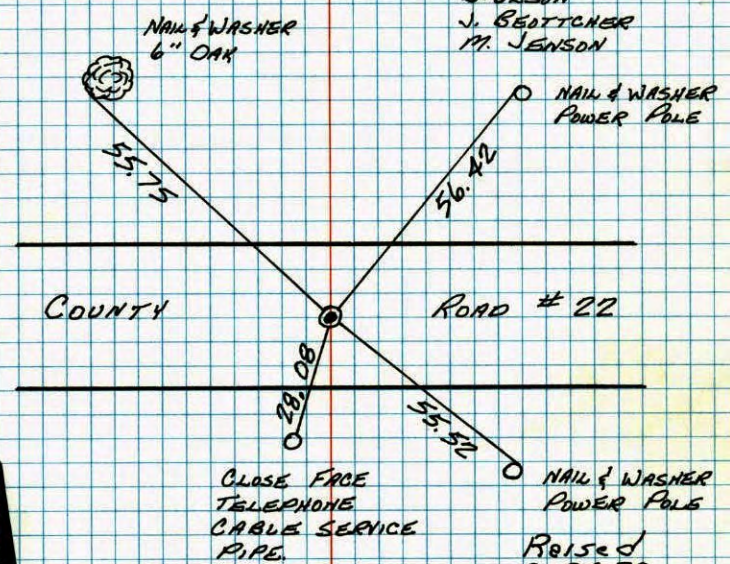 J. BEOTTCHER
M. JENSON
NAIL & WASHER
6" OAK
NAIL & WASHER
POWER POLE
55.75
56.42
COUNTY ROAD # 22
28.08
55.52
CLOSE FACE
TELEPHONE
CABLE SERVICE
PIPE.
NAIL & WASHER
POWER POLE
Raised